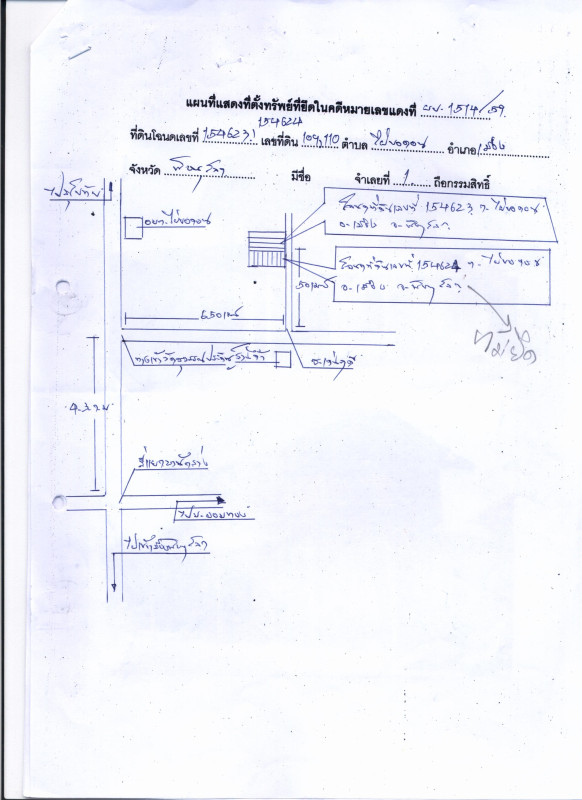 แผนที่แสดงที่ตั้งทรัพย์ที่ยึดในคดีหมายเลขแดงที่ ผบ. 1514/59
154624
ที่ดินโฉนดเลขที่ 154623, เลขที่ดิน 109,110 ตำบล ไผ่ขอดอน อำเภอ เมือง
จังหวัด พิษณุโลก มีชื่อ จำเลยที่ 1 ถือกรรมสิทธิ์
ไปสุโขทัย
อบต.ไผ่ขอดอน
โฉนดที่ดินเลขที่ 154623 ต. ไผ่ขอดอน
อ.เมือง จ.พิษณุโลก
โฉนดที่ดินเลขที่ 154624 ต. ไผ่ขอดอน
อ.เมือง จ.พิษณุโลก
50 เมตร
650 เมตร
4 ก.ม.
สี่แยกบ้านคลอง
ไปเข้าเมืองพิษณุโลก